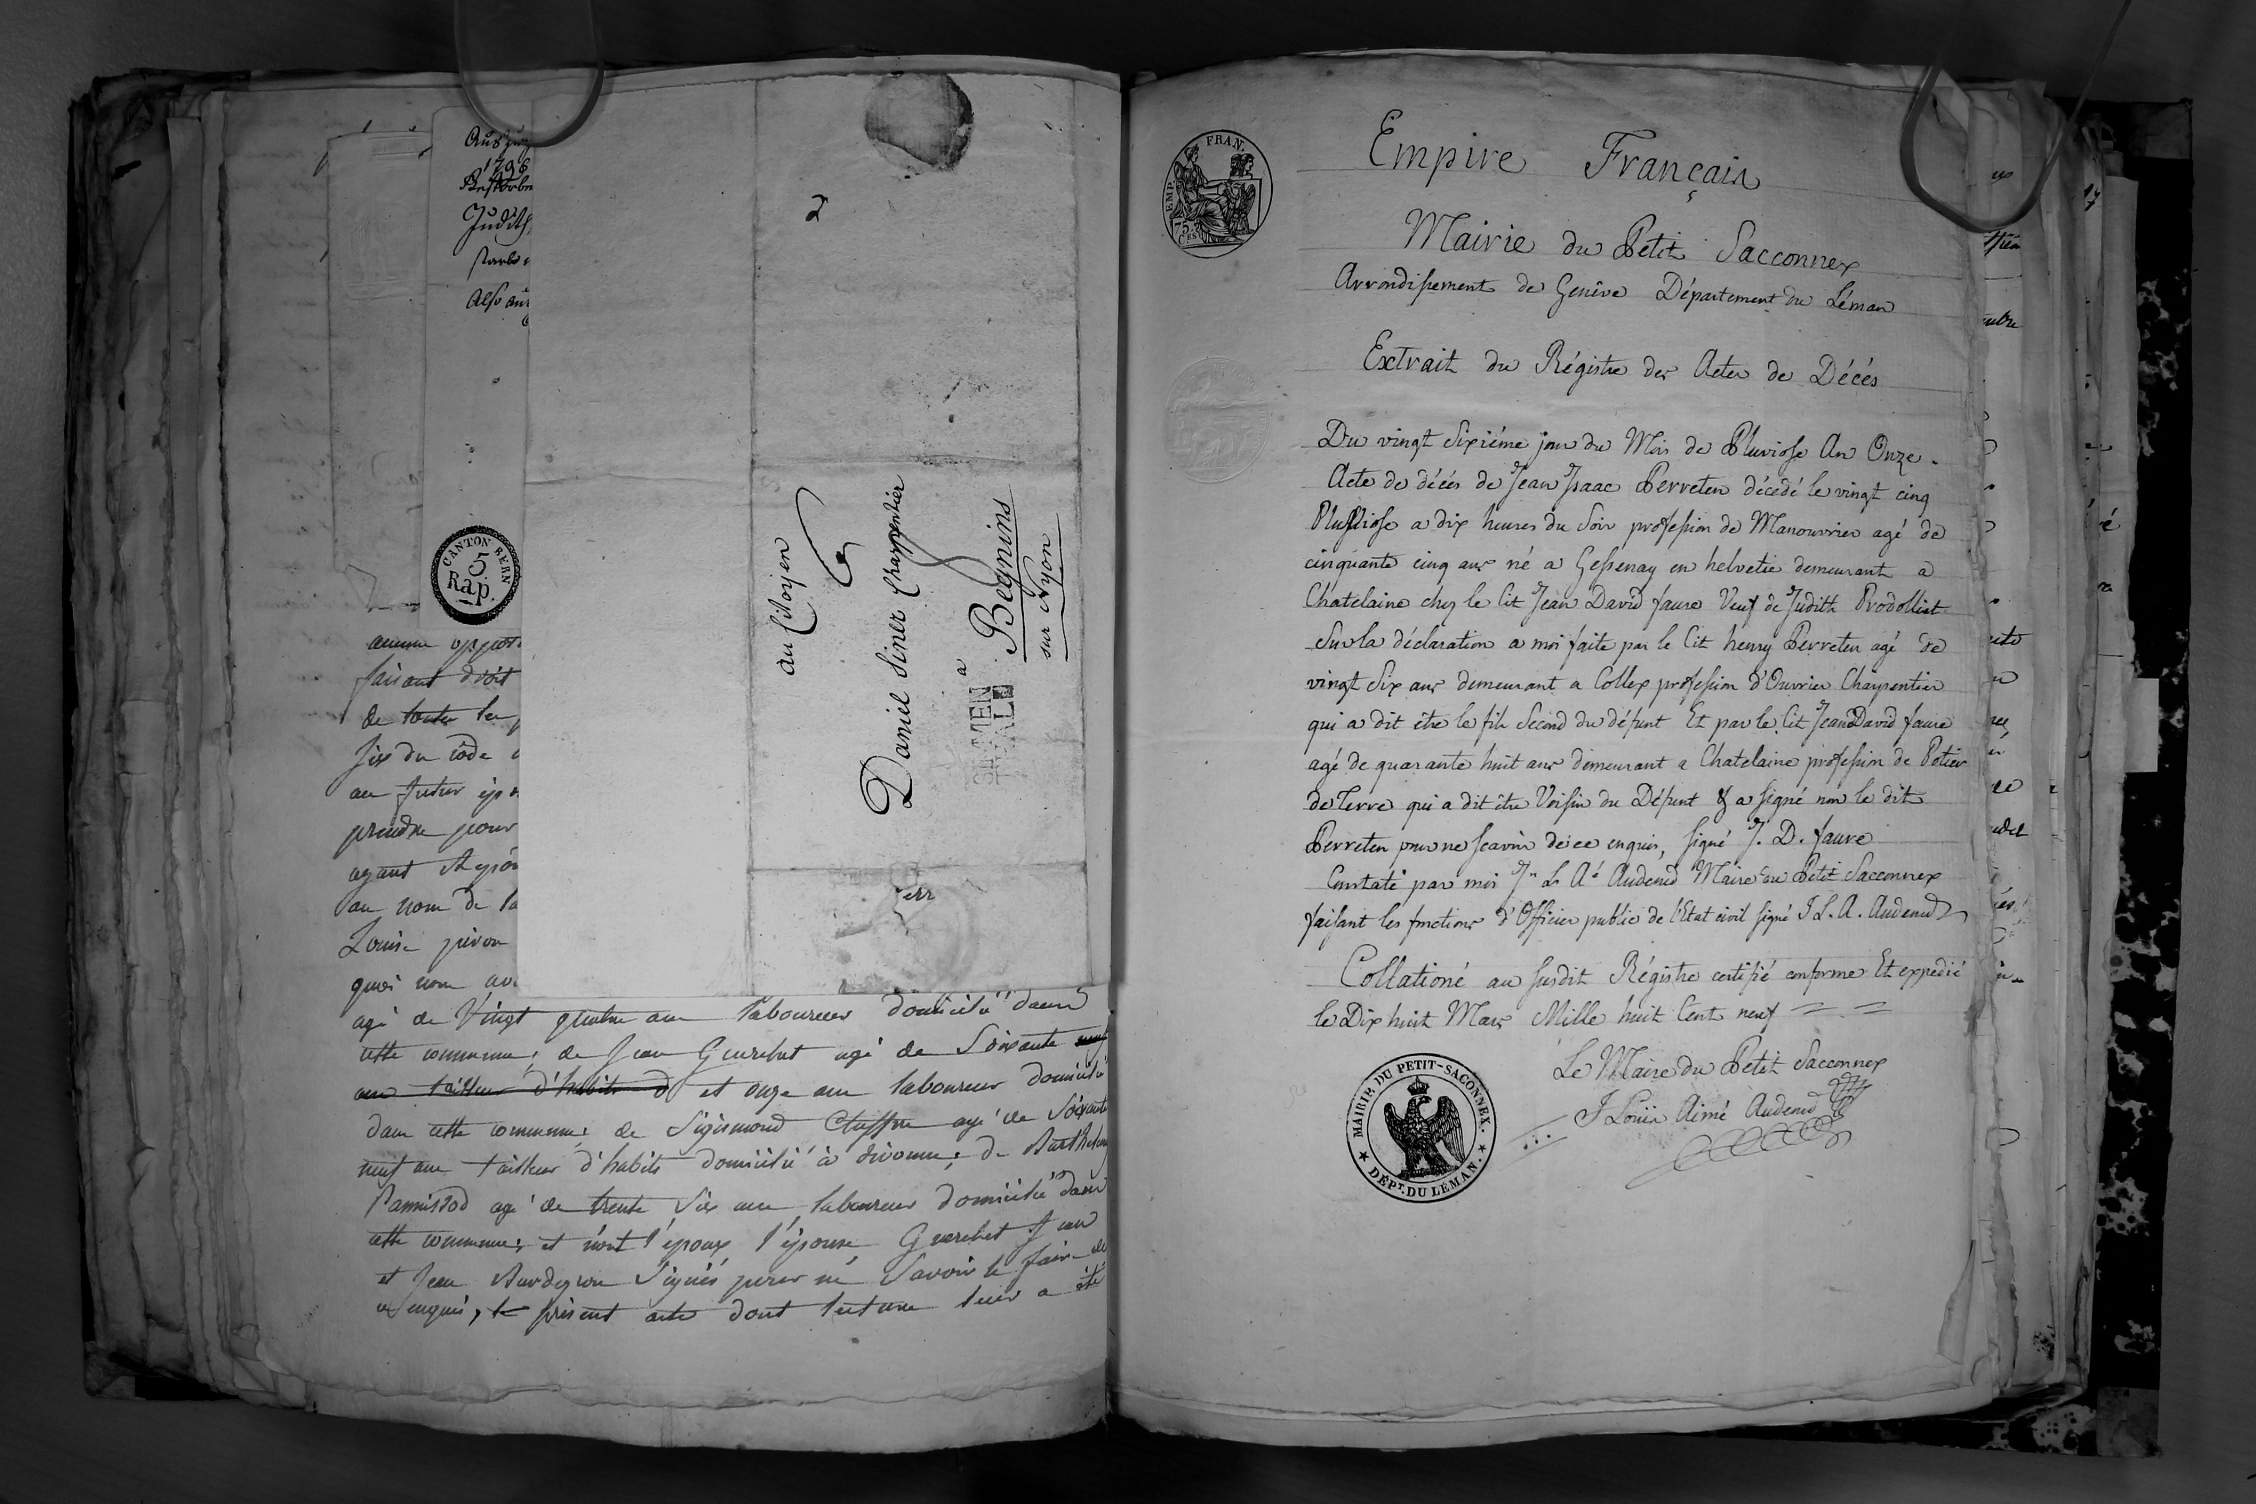 Aus
1798
Judith
Also aus
CANTON BERN
5
Rap.
aucune oppos
faisant droit
de toutes les
six du code
au futur épo
prendre pour
ayant répon
au nom de la
Louise
quoi nous av
agé de Vingt quatre ans laboureur domicilié dans
cette commune; de Jean Guerchet agé de Soixante neuf
ans tailleur d'habits d et onze ans laboureur domicilié
dans cette commune; de Sigismond agé de Soixante
neuf ans tailleur d'habits domicilié à divonne; de
Pannissod agé de trente Six ans laboureur domicilié dans
cette commune; et n'ont l'époux l'épouse Guerchet Jean
et Jean Signés pour ne Savoir le faire de
ce enquis, le présent acte dont lecture leur a été
2
au Citoyen
Daniel Siner Charpentier
a
Begnins
sur Nyon
SIMMEN
THAL
err
EMP. FRAN.
75.
CES
Empire Français
Mairie du Petit Sacconnex
Arrondissement de Genève Département du Léman
Extrait du Régistre des Actes de Décés
Du vingt Sixiéme jour du Mois de Pluviose An Onze.
Acte de décés de Jean Isaac Perreten décedé le vingt cinq
Pluviose a dix heures du Soir profession de Manouvrier agé de
cinquante cinq ans né a Gessenay en helvetie demeurant a
Chatelaine chez le Cit Jean David faure Veuf de Judith Prodolliet
Sur la déclaration a moi faite par le Cit henry Perreten agé de
vingt Six ans demeurant a Collex profession d'Ouvrier Charpentier
qui a dit être le fils Second du défunt Et par le Cit Jean David faure
agé de quarante huit ans demeurant a Chatelaine profession de Potier
de Terre qui a dit être Voisin du Défunt & a signé non le dit
Perreten pour ne scavoir de ce enquis, signé J. D. faure
Constaté par moi Jn Ls Aé Audeoud Maire du Petit Sacconnex
faisant les fonctions d'Officier public de l'Etat civil signé J. L. A. Audeoud
Collationé au susdit Régistre certifié conforme Et expedié
le Dix huit Mars Mille huit Cent neuf
Le Maire du Petit Sacconnex
J Louis Aimé Audeoud
MAIRIE DU PETIT-SACONNEX.
DÉPT. DU LEMAN.